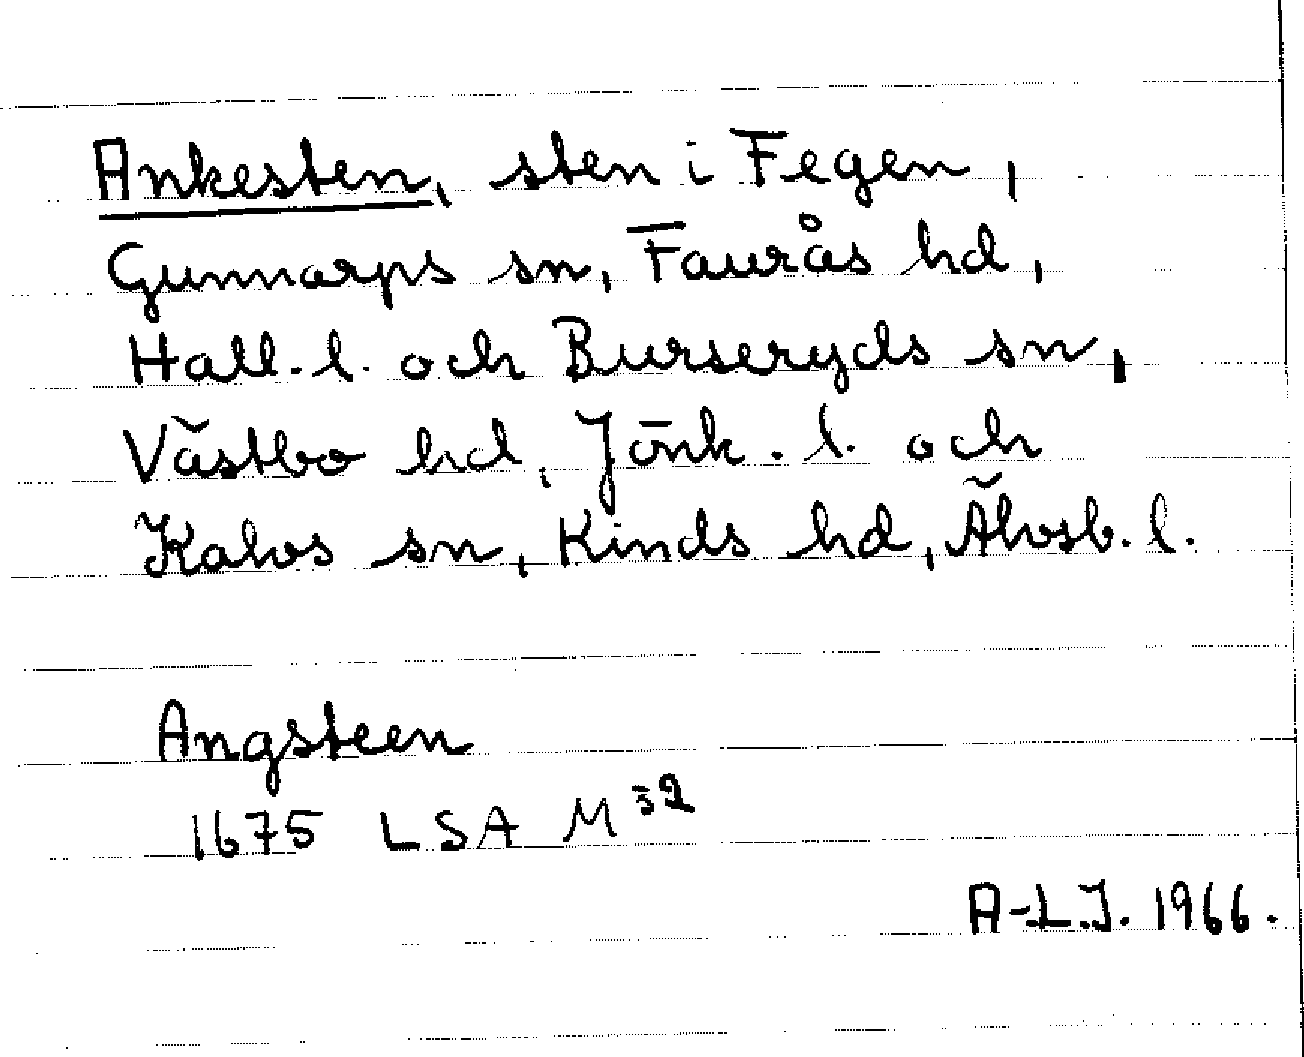 Ankesten, sten i Fegen,
Gunnarps sn, Faurås hd,
Hall. l. och Burseryds sn,
Västbo hd, Jönk. l. och
Kalvs sn, Kinds hd, Älvsb. l.
Angsteen
1675 LSA M³²
A-L.J. 1966.